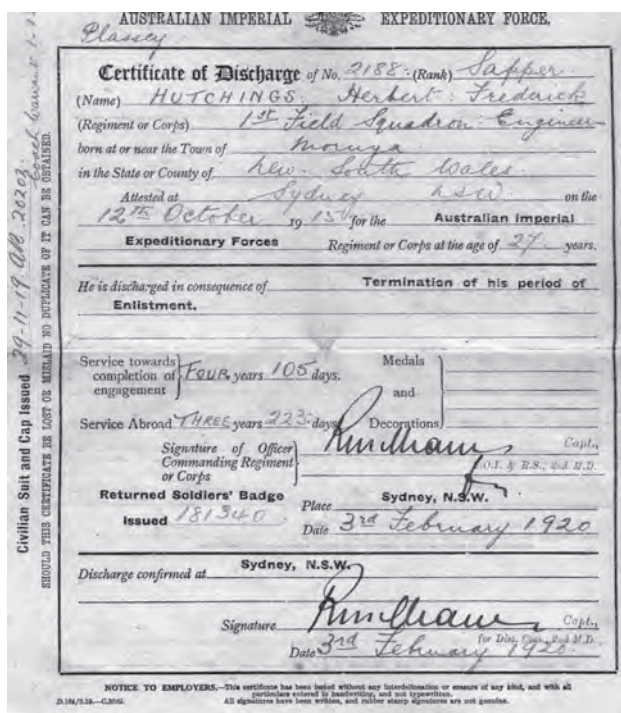 AUSTRALIAN IMPERIAL EXPEDITIONARY FORCE.
Plassey
Certificate of Discharge of No. 2188 (Rank) Sapper
(Name) HUTCHINGS Herbert Frederick
(Regiment or Corps) 1st Field Squadron Engineer
born at or near the Town of Moruya
in the State or County of New South Wales
Attested at Sydney NSW on the
12th October 1915 for the Australian Imperial
Expeditionary Forces Regiment or Corps at the age of 27 years.
He is discharged in consequence of Termination of his period of
Enlistment.
Service towards completion of engagement } FOUR years 105 days.
Medals and Decorations
Service Abroad THREE years 223 days
Signature of Officer Commanding Regiment or Corps } Capt.,
O.I. & R.S., 2nd M.D.
Returned Soldiers' Badge
Issued 181340
Place Sydney, N.S.W.
Date 3rd February 1920
Discharge confirmed at Sydney, N.S.W.
Signature Capt.,
for Dist. Com., 2nd M.D.
Date 3rd February 1920
NOTICE TO EMPLOYERS.—This certificate has been issued without any interlineation or erasure of any kind, and with all
particulars entered in handwriting, and not typewritten.
All signatures have been written, and rubber stamp signatures are not genuine.
Civilian Suit and Cap Issued 29-11-19
SHOULD THIS CERTIFICATE BE LOST OR MISLAID NO DUPLICATE OF IT CAN BE OBTAINED.